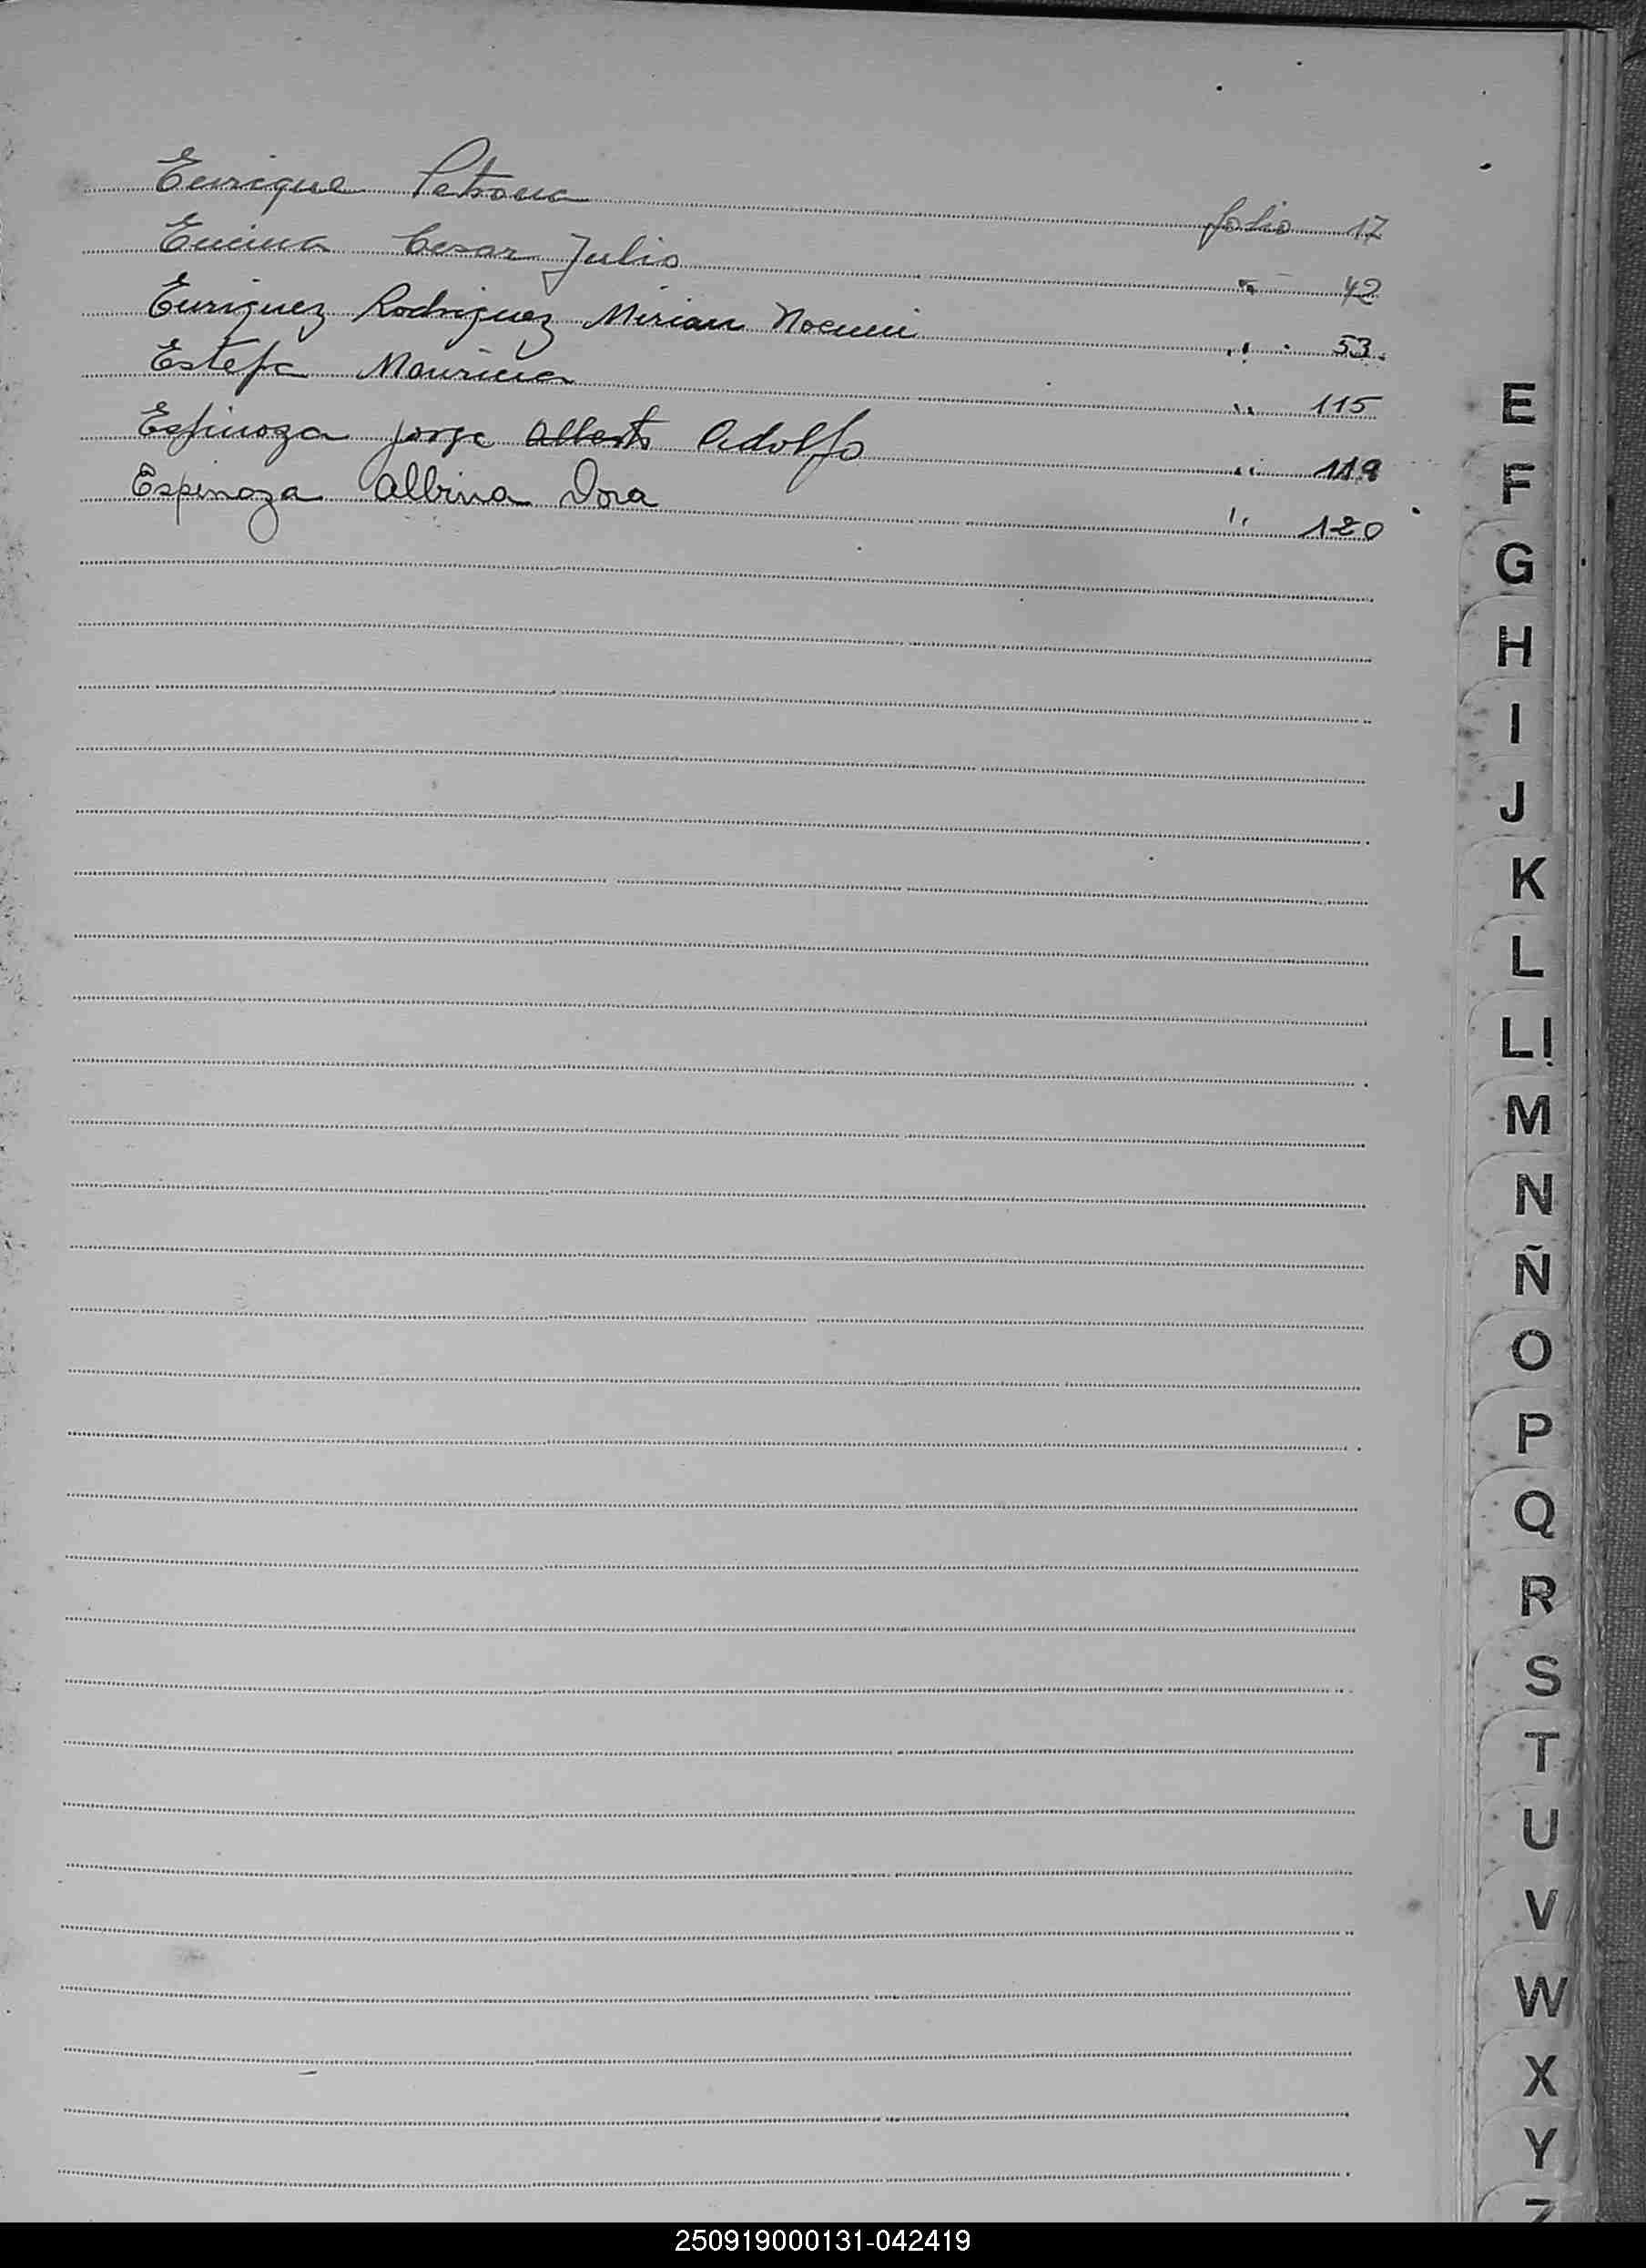 Enrique Petrona folio 17
Encina Cesar Julio " 42
Enriquez Rodriguez Mirian Noemi " 53
Estefa Mauricia " 115
Espinoza Jorge Alberto Adolfo " 119
Espinoza Albina Dora " 120
E
F
G
H
I
J
K
L
LL
M
N
Ñ
O
P
Q
R
S
T
U
V
W
X
Y
Z
250919000131-042419